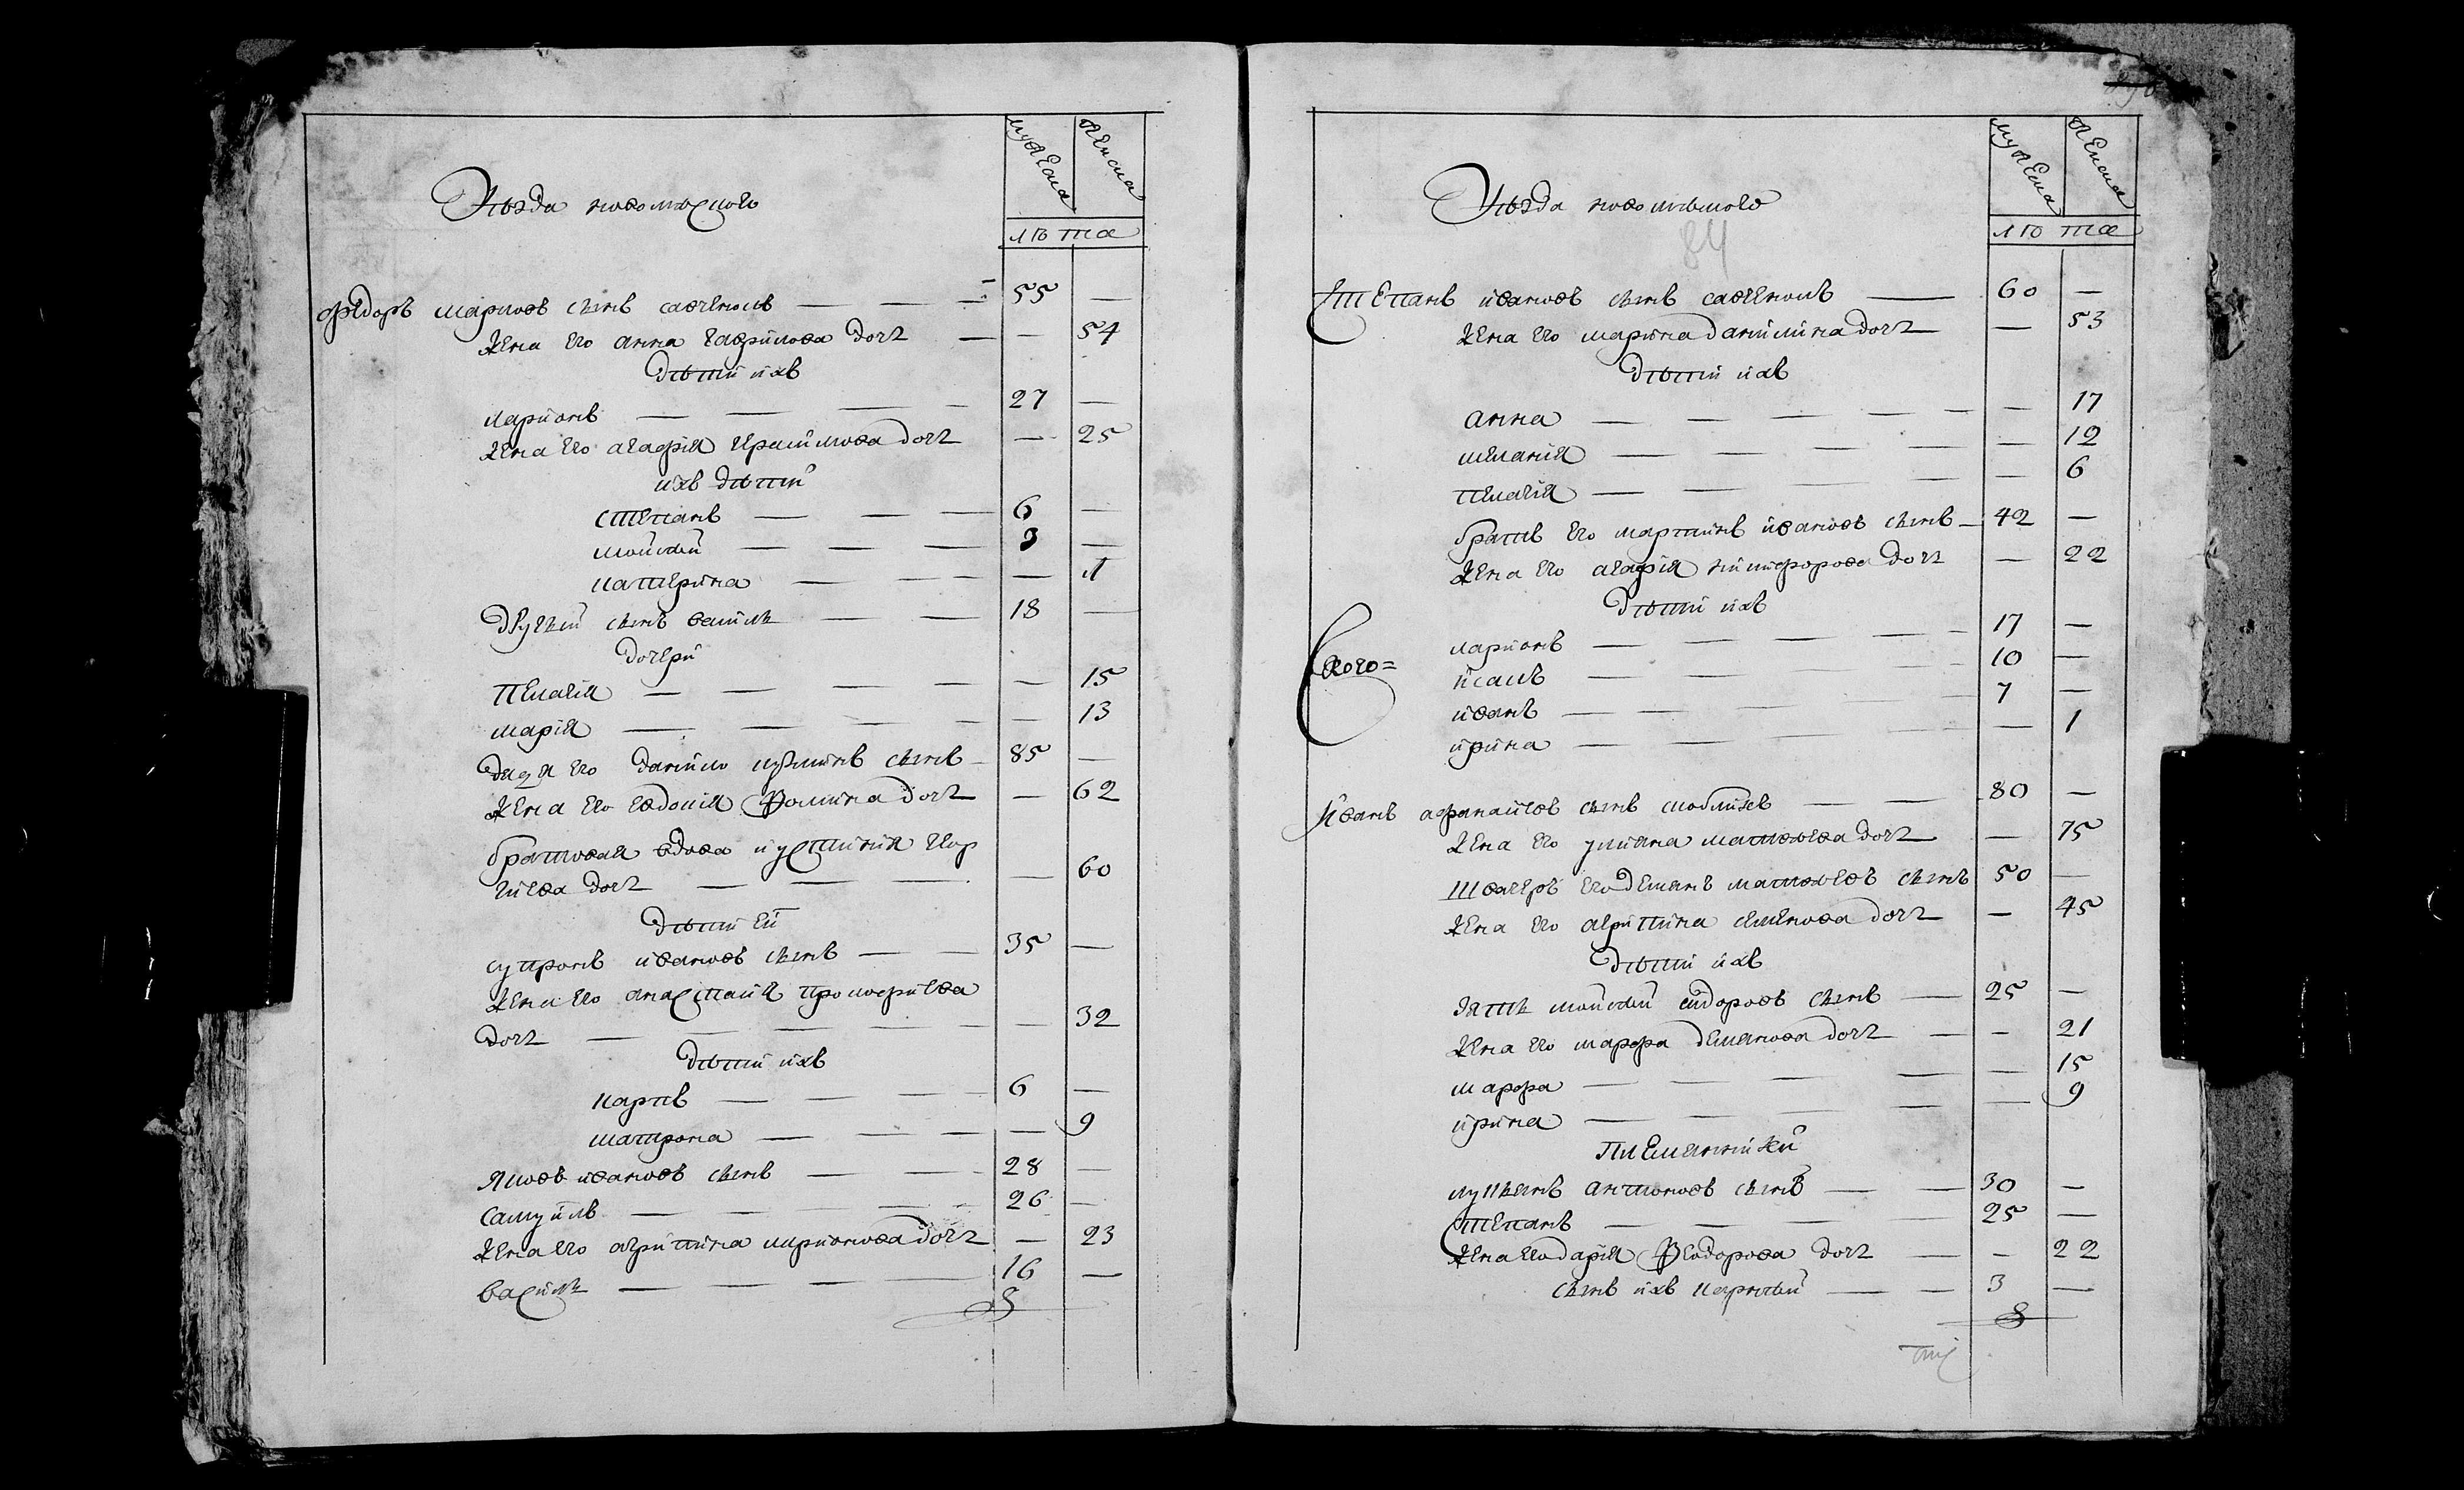 Уѣзда новомѣского
мужеска
женска
лѣта
федоръ марковъ сынъ савченокъ — 55 —
жена его анна гаврилова дочь — 54
дѣти ихъ
ларионъ — 27 —
жена его агафія ираклиова дочь — 25
ихъ дѣти
степанъ — 6 —
моисей — 3 —
катерина — 1
другий сынъ василь — 18 —
дочери
пелагія — 15
марія — 13
дядя его данило кузминъ сынъ 85 —
жена его евдокія Фомина дочь — 62
братовая вдова иустинія игор
гиева дочь — 60
дѣти ей
супронъ ивановъ сынъ — 35 —
жена его анастасия прокофиева
дочь — 32
дѣти ихъ
карпъ — 6 —
матрона — 9
яковъ ивановъ сынъ — 28 —
самуилъ — 26 —
жена его агрипина ларионова дочь — 23
василь — 16 —
Уѣзда новомѣского
84
мужеска
женска
лѣта
Степанъ ивановъ сынъ савченокъ — 60 —
жена его марина данилина дочь — 53
дѣти ихъ
анна — 17
меланія — 12
пелагія — 6
братъ его мартинъ ивановъ сынъ 42 —
жена его агафія никифорова дочь — 22
дѣти ихъ
ларионъ — 17 —
исакъ — 10 —
иванъ — 7 —
ирина — 1
Иванъ афанасиевъ сынъ — 80 —
жена его улияна матвѣева дочь — 75
Швагеръ его демянъ матвѣевъ сынъ 50 —
жена его агрипина семенова дочь — 45
дѣти ихъ
зять моисей сидоровъ сынъ — 25 —
жена его марфа демянова дочь — 21
марфа — 15
ирина — 9
племянники
лукьянъ антоновъ сынъ — 30 —
степанъ — 25 —
жена его дарія Феодорова дочь — 22
сынъ ихъ карней — 3 —